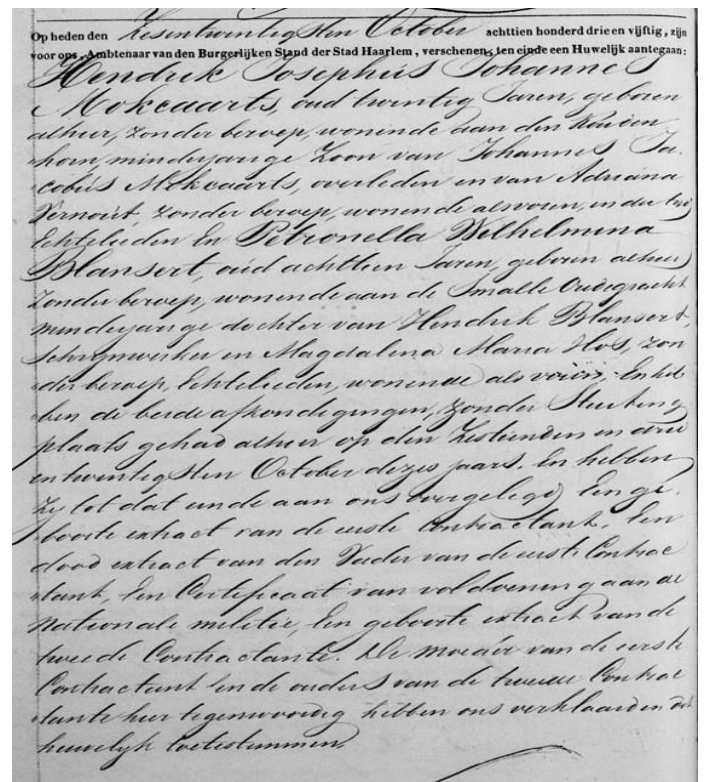 Op heden den Zesentwintigsten October achttien honderd drie en vijftig, zijn
voor ons, Ambtenaar van den Burgerlijken Stand der Stad Haarlem, verschenen, ten einde een Huwelijk aantegaan:
Hendrik Josephus Johannes
Mokveaarts, oud twintig Jaren, geboren
alhier, zonder beroep, wonende aan den
horn, minderjarige Zoon van Johannes Ja-
cobus Mokveaarts, overleden en van Adriana
Vernout, zonder beroep, wonende als voren, in der tijd
Echtelieden En Petronella Wilhelmina
Blansert, oud achttien Jaren, geboren alhier
zonder beroep, wonende aan de Smalle Oudegracht
minderjarige dochter van Hendrik Blansert,
Schrijnwerker en Magdalena Maria Vos, zon
der beroep, Echtelieden, wonende als voren; En heb
ben de beide afkondigingen, zonder Stuiting
plaats gehad alhier op den Zestienden en drie
en twintigsten October dezes jaars. En hebben
zij tot dat einde aan ons overgelegd Een ge-
boorte extract van de eerste Contractant. Een
dood extract van den Vader van de eerste Contrac
tant, Een Certificaat van voldoening aan de
Nationale militie, Een geboorte extract van de
tweede Contractante. De moeder van de eerste
Contractant en de ouders van de tweede Contrac
tante hier tegenwoordig hebben ons verklaard in dit
huwelijk toetestemmen.